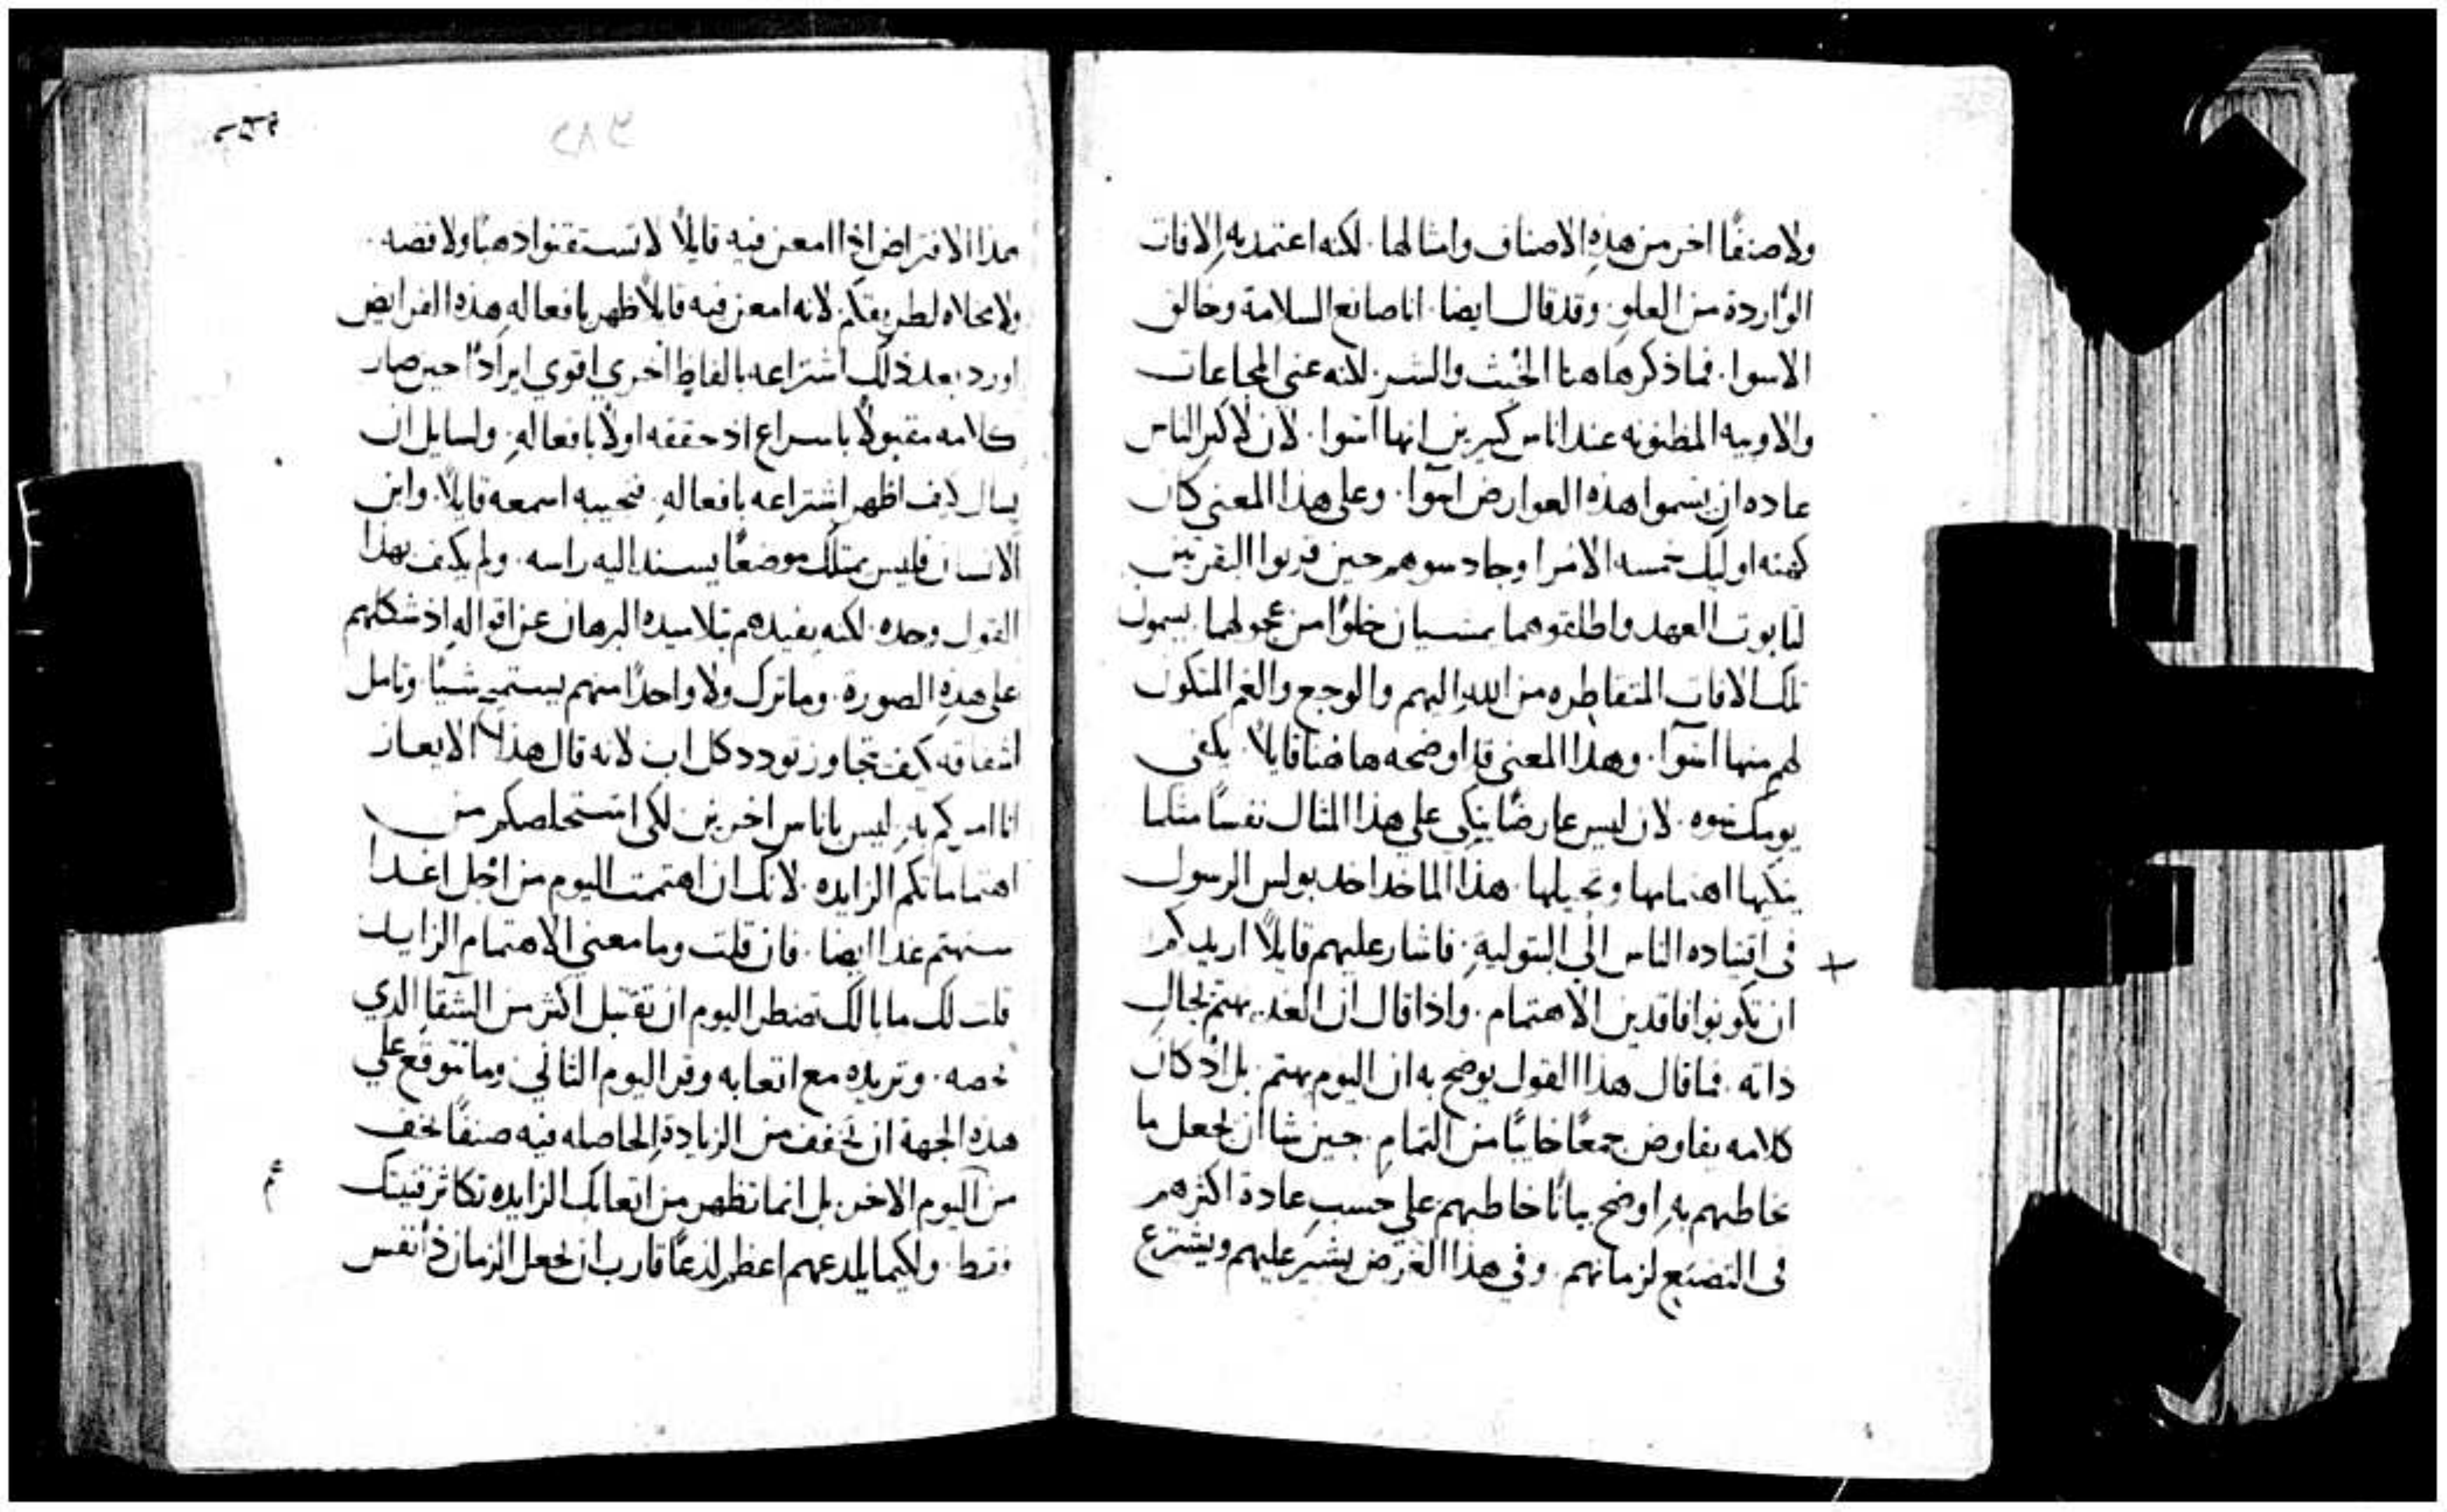 ولا صنفًا اخر من هذهِ الاصناف وامثالها. لكنه اعتمد بهِ الافات
الوٌاردة من العلوِ. وقد قال ايضا. انا صانع السلامة وخالق
الاسوا. فما ذكر هاهنا الخبث والشر. لكنه عنى المجاعات
والاوبيه المظنونه عند اناس كثيرين انها اسوا. لان لاكثر الناس
عاده ان يسموا هذه العوارض اسوا. وعلى هذا المعنى كان
كهنه اوليك خمسه الامرا وجادسوهم حين قربوا البقرتين
لتابوت العهد واطلقوهما يمشيان خلوًا من عجولهما. يسمون
تلك الافات المتقاطره من الله اليهم والوجع والغم المتكون
لهم منها اسوا. وهذا المعنى قد اوضحه هاهنا قايلاً. يكفى
يومك سوه. لان ليس عارضًا ينكي على هذا المثال نفسًا مثلما
ينكيها اهتمامها وتحيلها. هذا الماخد اخد بولس الرسول
فى اقتياده الناس الى البتوليةِ. فاشار عليهم قايلاً اريدكم
ان تكونوا فاقدين الاهتمام. واذا قال ان الغد يهتم بحال
ذاته. فما قال هذا القول يوضح به ان اليوم يهتم. بل اذ كان
كلامه يفاوض جمعًا خايبًا من التمامِ. حين شا ان يجعل ما
خاطبهم بهِ اوضح بيانًا خاطبهم على حسبِ عادة اكثرهم
فى التصنيع لزمانهم. وفى هذا الغرض يشير عليهم ويشترع
٢٣٣
٢٨٢
هذا الافتراض اذا امعن فيه قايلاً لا تستقنوا ذهبًا ولا فضه.
ولا مخلاه لطريقكم. لانه امعن فيه قايلاً ظهر بافعالهِ هذه الفرايض
اورد بعد ذلك اشتراعه بالفاظٍ اخري اقوي ايرادًا حين صار
كلامه مقبولاً باسراع اذ حققه اولاً بافعالهِ. ولسايل ان
يسال كيف اظهر اشتراعه بافعالهِ. فنجيبه اسمعه قايلاً. وابن
الانسان فليس يمتلك موضعًا يسند اليه راسه. ولم يكتف بهذا
القول وحده. لكنه يفيدهم بتلاميده البرهان عن اقوالهِ اذ شكلهم
على هذهِ الصورة. وما ترك ولا واحدًا منهم يستميح شيًا. وتامل
اشفاقه كيف يتجاوز تودد كل اب لانه قال هذا الايعاز
انا امركم بهِ. ليس باناس اخرين لكى استخلصكم من
اهتماماتكم الزايده. لانك ان اهتممت اليوم من اجل اغدا
ستهتم غدا ايضا. فان قلت وما معنى الاهتمام الزايد
قلت لك ما بالك تضطر اليوم ان تقتبل اكثر من الشقا الدي
يخصه. وتزيده مع اتعابه وقر اليوم الثانى وما تتوقع على
هذه الجهة ان تخفف من الزيادةِ الحاصله فيه صنفًا يخف
من اليوم الاخر. بل انما تظهر من اتعابك الزايده تكاثر قنيتك
فقط. ولكيما يلدعهم اعظم لدعًا قارب ان يجعل الزمان ذا نفس